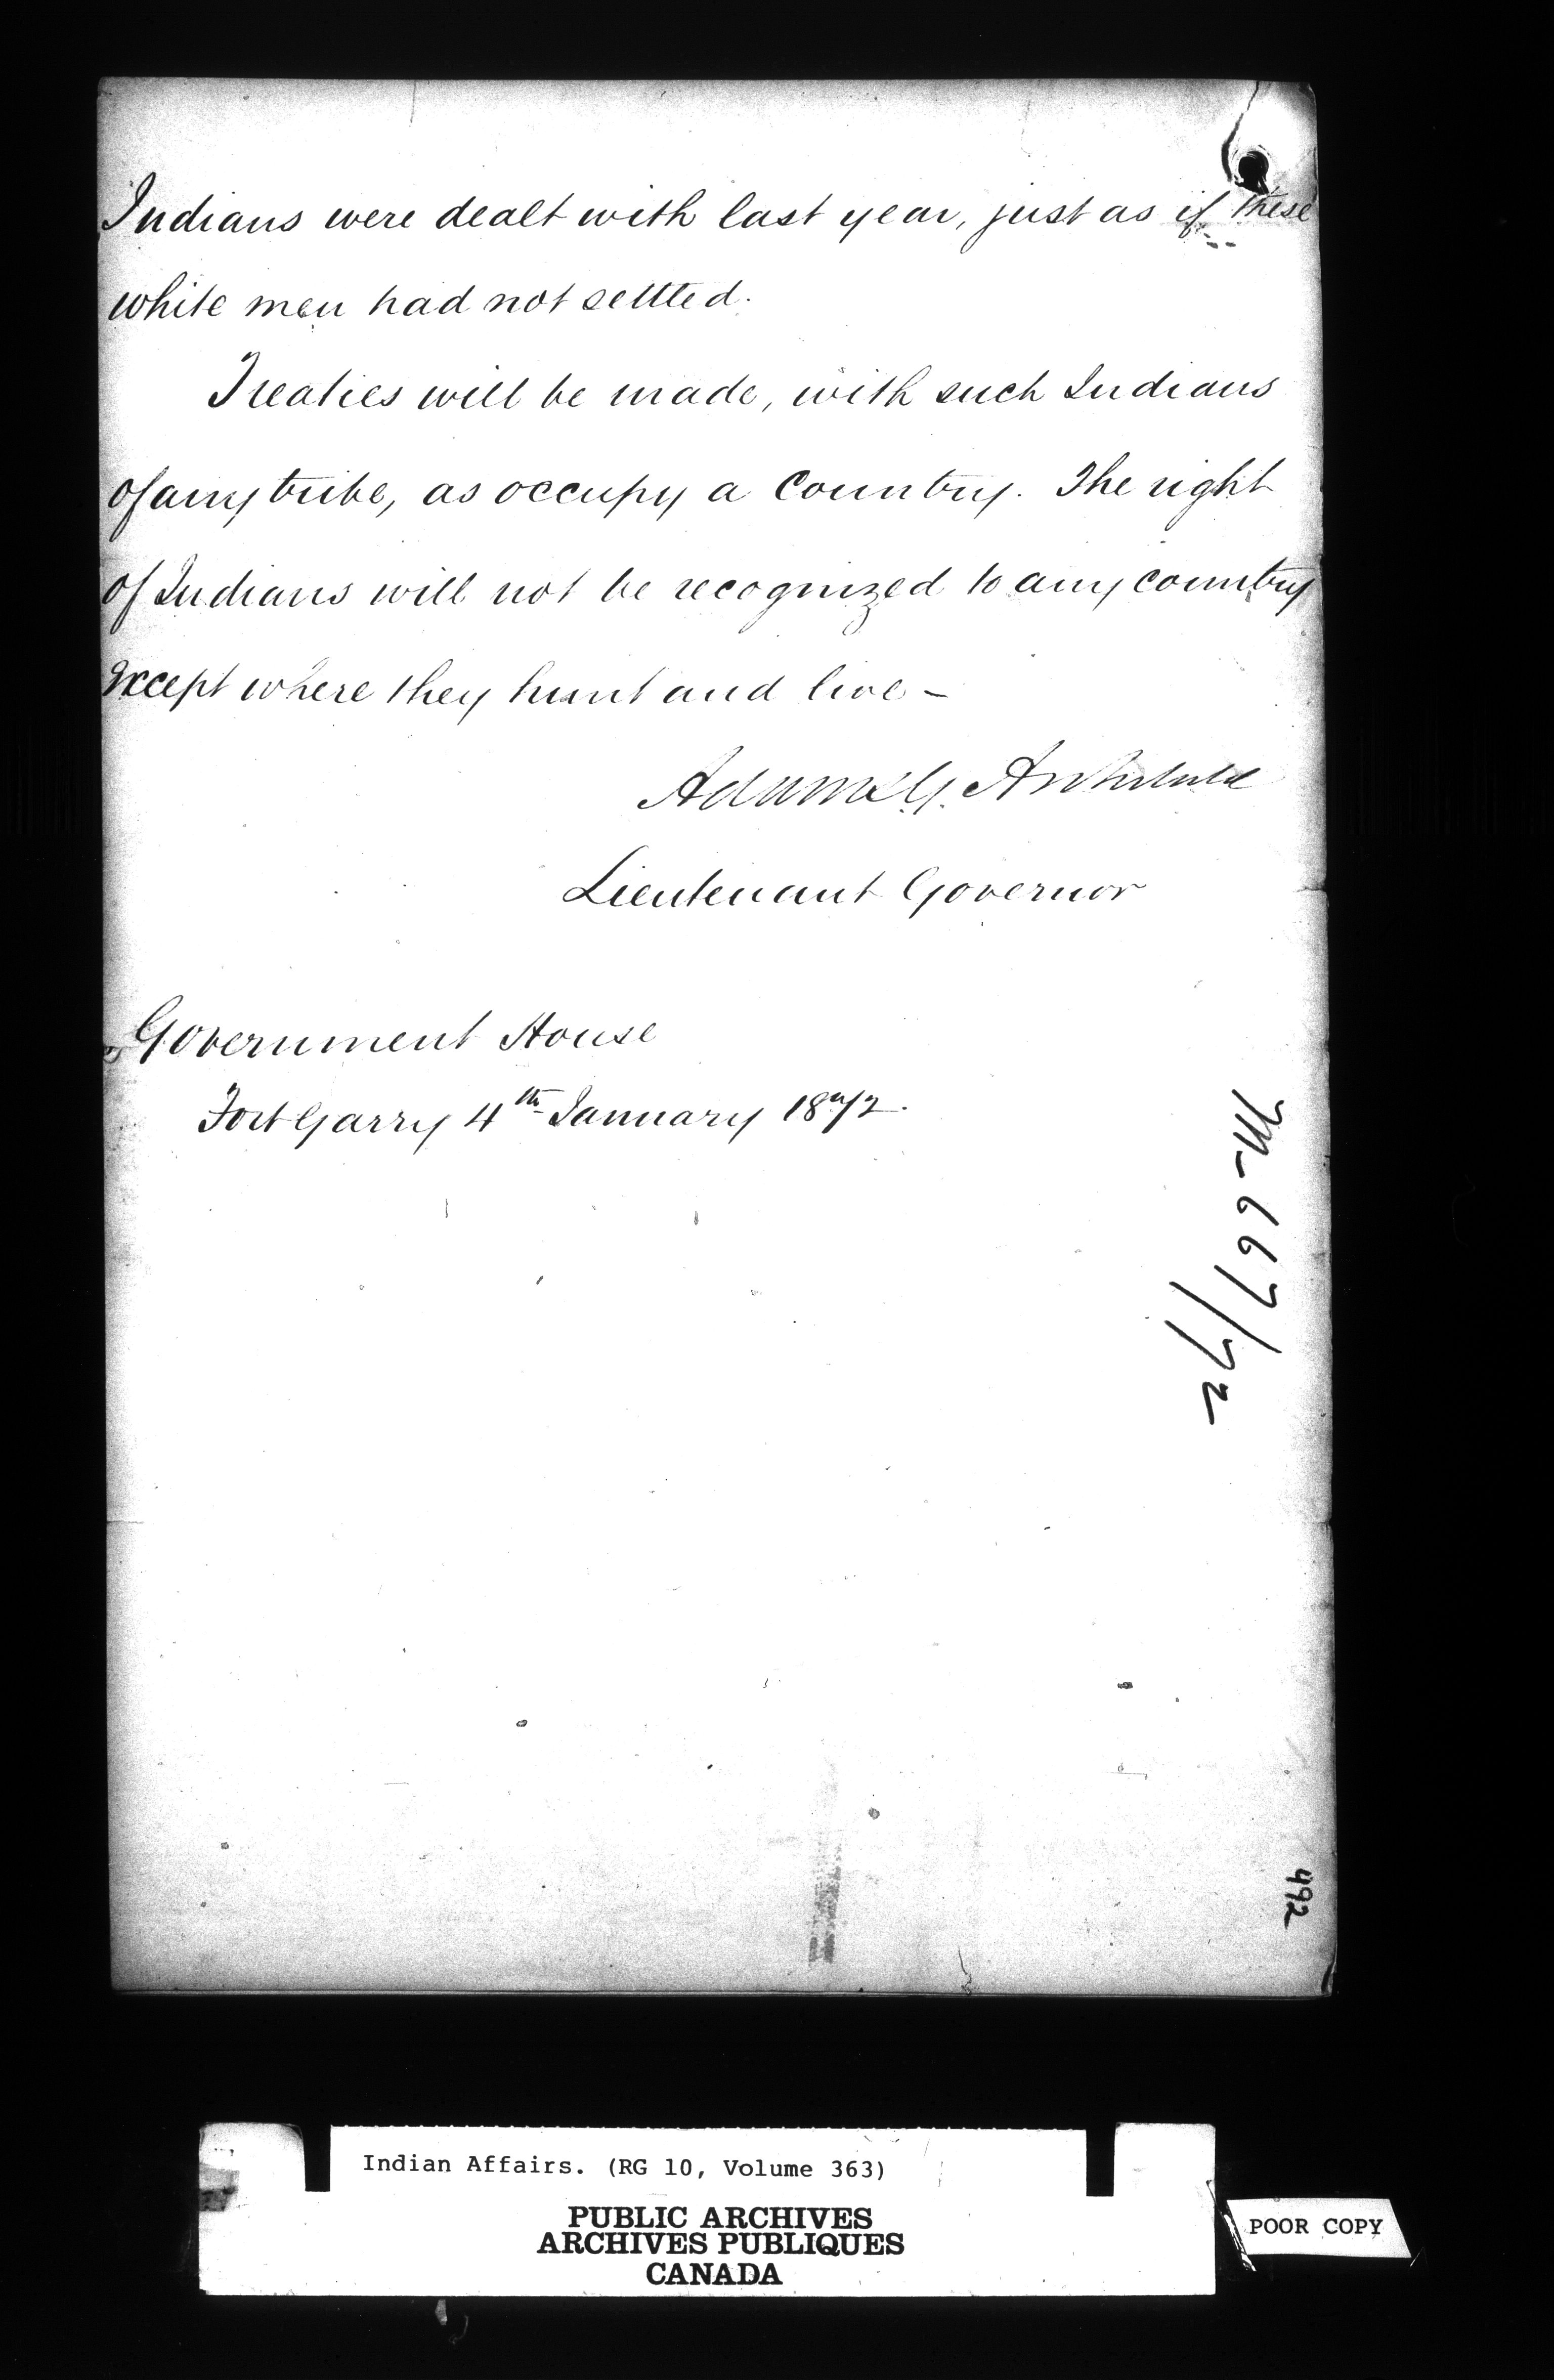 Indians were dealt with last year, just as if these
white men had not settled.
Treaties will be made, with such Indians
of any tribe, as occupy a Country. The right
of Indians will not be recognized to any country
except where they hunt and live –
Adams G. Archibald
Lieutenant Governor
Government House
Fort Garry 4th January 1872.
M-667/72
492
Indian Affairs. (RG 10, Volume 363)
PUBLIC ARCHIVES
ARCHIVES PUBLIQUES
CANADA
POOR COPY